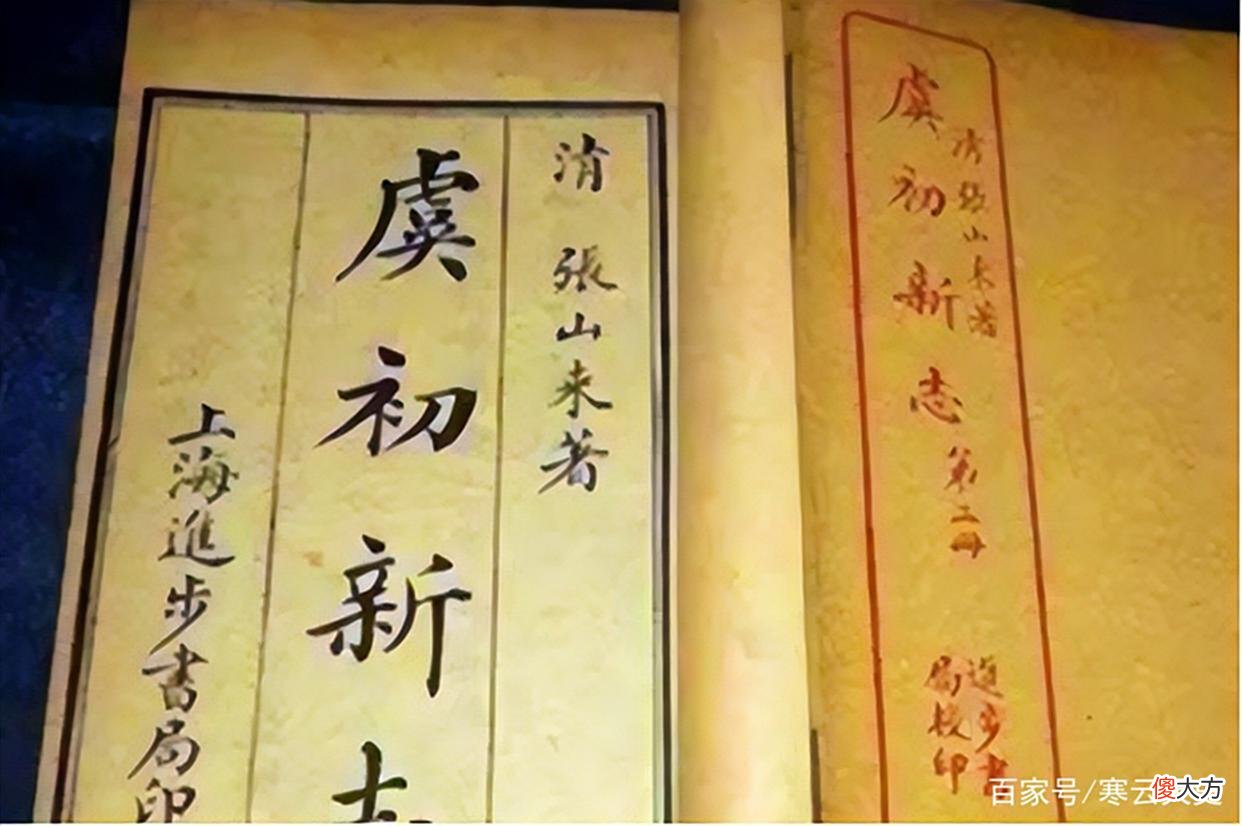 清張山來著
虞初新志 第二冊
進步書
局校印
清 張山來著
虞初新志
上海進步書局印
百家号/寒云
傻大方